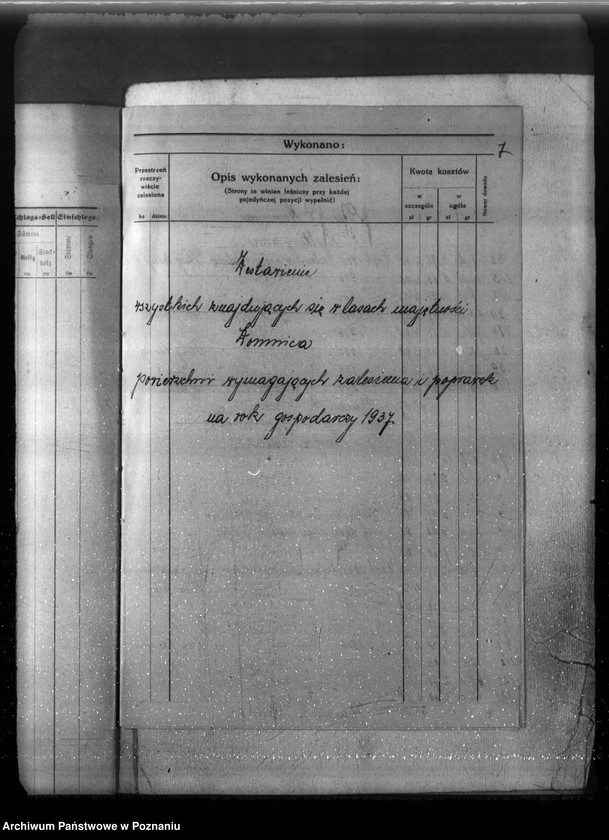 7
Wykonano:
Przestrzeń
rzeczy-
wiście
zalesiona
ha dzies.
Opis wykonanych zalesień:
(Strony te winien leśniczy przy każdej
pojedyńczej pozycji wypełnić)
Kwota kosztów
w
szczególe
w
ogóle
zł gr zł gr
Numer dowodu
Zestawienie
wszystkich znajdujących się w lasach majętności
Łomnica
powierzchni wymagających zalesienia i poprawek
na rok gospodarczy 1937.
Einschlags
Archiwum Państwowe w Poznaniu